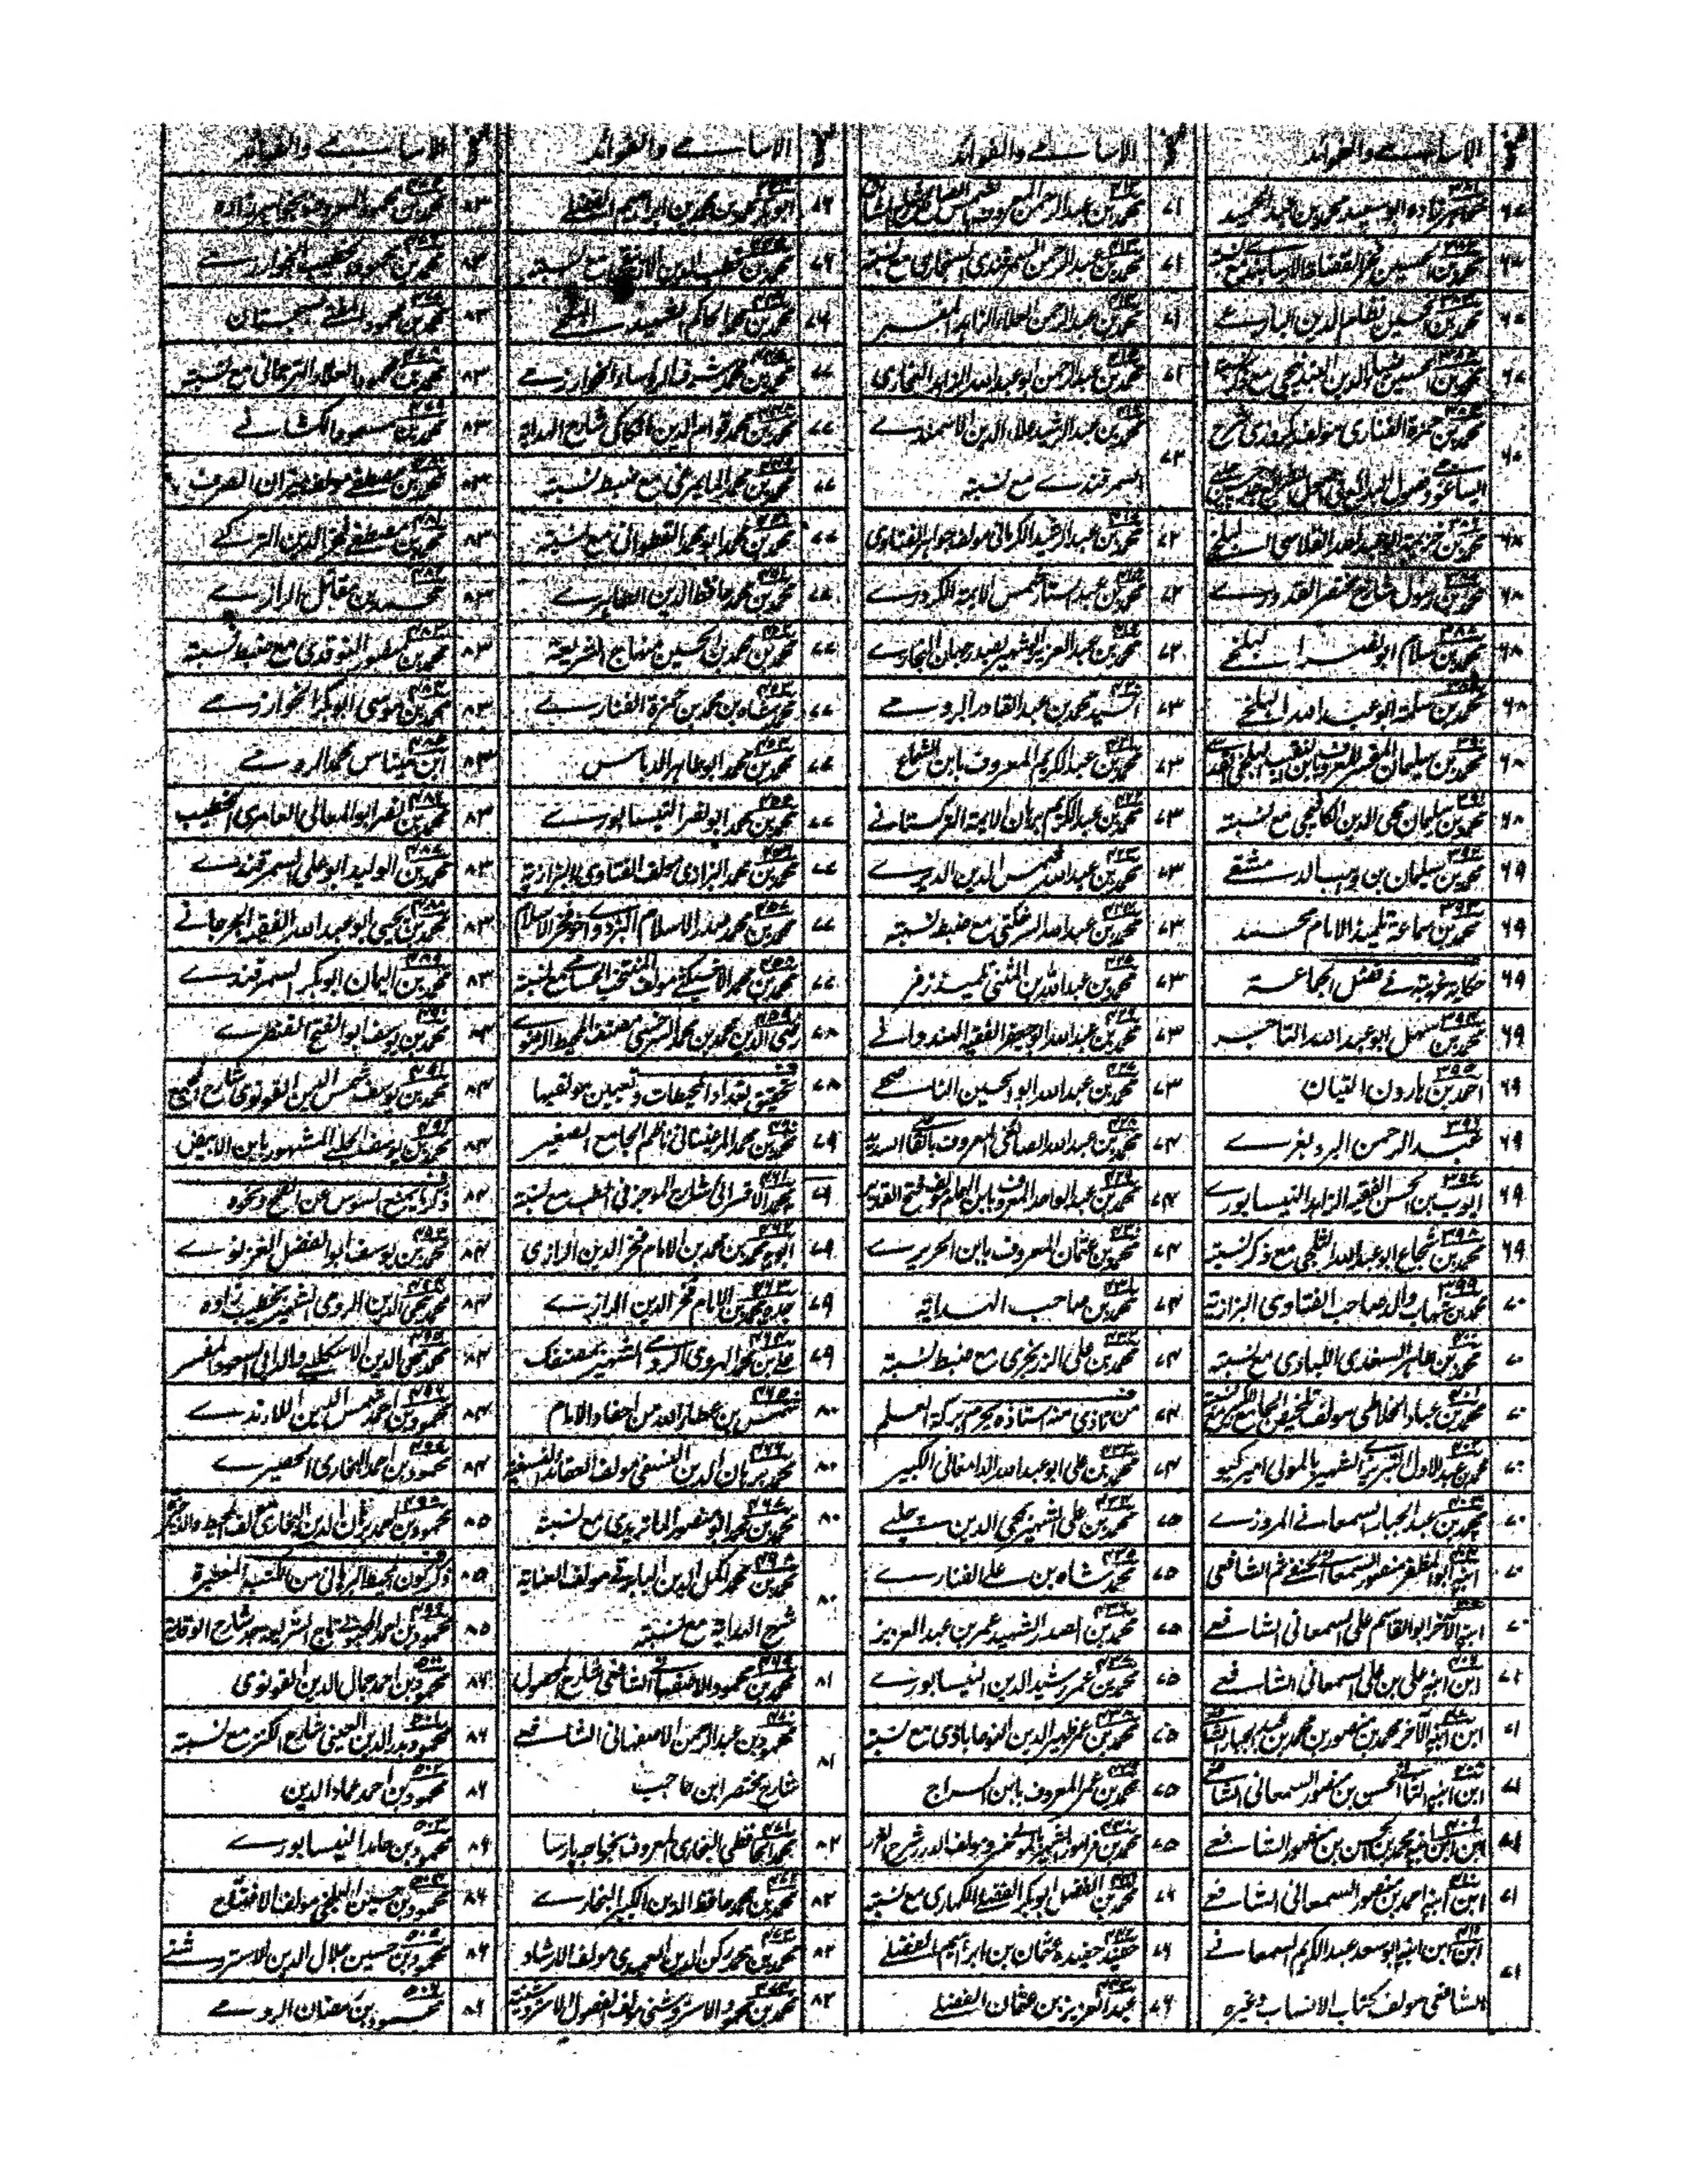 صفحه الاسامے والفوائد
۶۷ خواهرزاده ابو سعید محمد بن عبد الحمید
۶۷ محمد بن الحسین فخر القضاة الارسابندی مع نسبته
۶۷ محمد بن الحسین نظام الدین البارعے
۶۷ محمد بن الحسین ضیاء الدین البندنیجی
۶۷ محمد بن حمزة الفناری مولف
۶۸ محمد بن خزیمة ابو عبد الله القلاسی البلخے
۶۸ محمد بن رسول شارح مختصر القدورے
۶۸ محمد بن سلام ابو نصر البلخے
۶۸ محمد بن سلمة ابو عبد الله البلخے
۶۸ محمد بن سلیمان المفسر المعروف بابن النقیب
۶۸ محمد بن سلیمان محی الدین الکافیجی مع نسبته
۶۹ محمد بن سلیمان بن وهیب الدمشقے
۶۹ محمد بن سماعة تلمیذ الامام محمد
۶۹ حکایة غریبة فے فضل الجماعة
۶۹ محمد بن سهل ابو عبد الله التاجر
۶۹ احمد بن هارون التبان
۶۹ عبد الرحمن البردغرے
۶۹ ایوب بن الحسن الفقیه الزاهد النیسابورے
۶۹ محمد بن شجاع ابو عبد الله الثلجی مع ذکر نسبته
۷۰ محمد بن شهاب والد صاحب الفتاوی البزازیة
۷۰ محمد بن طاهر السغدی اللبادی مع نسبته
۷۰ محمد بن عباد الخلاطی مولف تلخیص الجامع الکبیر
۷۰ محمد بن عبد الاول التبریزی الشهیر بالمولی امیر کیو
۷۰ محمد بن عبد الجبار السمعانے المروزے
۷۰ ابنه ابو المظفر منصور السمعانے الحنفی ثم الشافعی
۷۰ ابنه الآخر ابو القاسم علی السمعانی الشافعے
۷۱ ابن ابنه علی بن علی السمعانی الشافعے
۷۱ ابن ابنه الآخر محمد بن منصور بن محمد بن عبد الجبار
۷۱ ابن ابنه الثانی الحسن بن منصور السمعانی
۷۱ ابن ابن ابنه محمد بن الحسن بن منصور الشافعے
۷۱ ابن ابنه احمد بن منصور السمعانی الشافعے
۷۱ ابن ابن ابنه ابو سعد عبد الکریم السمعانے
الشافعی مولف کتاب الانساب وغیره
الاسامے والفوائد
۷۱ محمد بن عبد الرحمن المعروف بشمس
۷۱ محمد بن عبد الرحمن السمرقندی السنجاری مع نسبته
۷۱ محمد بن عبد الرحمن العلاء الزاهد المفسر
۷۱ محمد بن عبد الرحمن ابو عبد الله الزاهد البخاری
۷۲ محمد بن عبد الرشید علاء الدین الاسمندے
السمرقندے مع نسبته
۷۲ محمد بن عبد الرشید الکرمانی مولف جواهر الفتاوی
۷۲ محمد بن عبد الستار شمس الایمة الکردرے
۷۲ محمد بن عبد العزیز الشهیر بصدر جهان البخارے
۷۳ السید محمد بن عبد القادر الرومے
۷۳ محمد بن عبد الکریم المعروف بابن الشماع
۷۳ محمد بن عبد الکریم برهان الایمة الترکستانے
۷۳ محمد بن عبد الله شمس الدین الدیرے
۷۳ محمد بن عبد الله السرخکتی مع ضبط نسبته
۷۳ محمد بن عبد الله بن المثنی تلمیذ زفر
۷۳ محمد بن عبد الله ابو جعفر الفقیه الهندوانے
۷۳ محمد بن عبد الله ابو الحسین الناصحے
۷۴ محمد بن عبد الله الصائغی المعروف بالقاضی السدید
۷۴ محمد بن عبد الواحد المعروف بابن الهمام مولف فتح القدیر
۷۴ محمد بن عثمان المعروف بابن الحریرے
۷۴ محمد بن صاحب الهدایة
۷۴ محمد بن علی الزرنجری مع ضبط نسبته
۷۴ من تاذی منه استاذه یحرم برکة العلم
۷۴ محمد بن علی ابو عبد الله الدامغانی الکبیر
۷۵ محمد بن علی الشهیر بمحی الدین چلپے
۷۵ محمد شاه بن علی الفنارے
۷۵ محمد بن الصدر الشهید عمر بن عبد العزیز
۷۵ محمد بن عمر رشید الدین النیسابورے
۷۵ محمد بن عمر ظهیر الدین النوجاباذی مع نسبته
۷۵ محمد بن عمر المعروف بابن السراج
۷۵ محمد بن فرامرز الشهیر بالمولی خسرو مولف الدرر شرح الغرر
۷۶ محمد بن الفضل ابو بکر الفضلے الکماری مع نسبته
۷۶ حفید حفیده عثمان بن ابراهیم الفضلے
۷۶ عبد العزیز بن عثمان الفضلے
الاسامے والفوائد
۷۶ ابو بکر محمد بن محمد بن ابراهیم الفضلے
۷۶ محمد بن قطب الدین الازنیقی مع نسبته
۷۶ محمد بن محمد الحاکم الشهید البلخے
۷۷ محمد بن محمد شرف الرؤساء الخوارزمے
۷۷ محمد بن محمد قوام الدین الکاکی شارح الهدایة
۷۷ محمد بن محمد المایمرغی مع ضبط نسبته
۷۷ محمد بن محمد ابو محمد القطوانی مع نسبته
۷۷ محمد بن محمد حافظ الدین الطاهرے
۷۷ محمد بن محمد بن الحسین منهاج الشریعة
۷۷ محمد شاه بن محمد بن حمزة الفنارے
۷۷ محمد بن محمد ابو طاهر الدباس
۷۷ محمد بن محمد ابو نصر النیسابورے
۷۷ محمد بن محمد البزازی مولف الفتاوی البزازیة
۷۷ محمد بن محمد صدر الاسلام البزدوی اخو فخر الاسلام
۷۷ محمد بن محمد الاخسیکثی مولف المنتخب الحسامی مع نسبته
۷۸ رضی الدین محمد بن محمد السرخسی مصنف المحیط الرضوے
۷۸ تحقیق تعداد المحیطات وتعیین مولفیها
۷۹ محمد بن محمد المرغینانی ناظم الجامع الصغیر
۷۹ محمد الاقسرائی شارح الموجز فی الطب مع نسبته
۷۹ ابو محمد بن محمد بن الامام فخر الدین الرازی
۷۹ جده محمد بن الامام فخر الدین الرازے
۷۹ علی بن محمد الهروی الرومے الشهیر بمصنفک
۸۰ شمس بن عطاء الله من احفاد الامام
۸۰ محمد برهان الدین النسفی مولف العقائد النسفیة
۸۰ محمد بن محمد ابو منصور الماتریدی مع نسبته
۸۰ محمد بن محمد اکمل الدین البابرتی مولف العنایة
شرح الهدایة مع نسبته
۸۱ محمد بن محمود الاصفهانے الشافعی شارح المحصول
۸۱ محمود بن عبد الرحمن الاصفهانی الشافعے
شارح مختصر ابن حاجب
۸۲ محمد الحافظی البخاری المعروف بخواجه پارسا
۸۲ محمد بن محمد حافظ الدین الکبیر البخارے
۸۲ محمد بن محمد رکن الدین العمیدی مولف الارشاد
۸۲ محمد بن محمود الاستروشنی مولف الفصول الاستروشنیة
الاسامے والفوائد
۸۳ محمد بن محمود المعروف بخواهرزاده
۸۳ محمد بن محمود خطیب الخوارزمے
۸۳ محمد بن محمود المفتی بسجستان
۸۳ محمد بن محمود العلاء الترجمانی مع نسبته
۸۳ محمد بن مسعود الکشانے
۸۳ محمد بن مصطفے مولف میزان الصرف
۸۳ محمد بن مصطفے فخر الدین الترکے
۸۳ محمد بن مقاتل الرازے
۸۳ محمد بن منصور النوقدی مع ضبط نسبته
۸۳ محمد بن موسی ابو بکر الخوارزمے
۸۳ ابن میناس محمد الرومے
۸۳ محمد بن نصر ابو المعالی العامری الخطیب
۸۳ محمد بن الولید ابو علی السمرقندے
۸۳ محمد بن یحیی ابو عبد الله الفقیه الجرجانے
۸۳ محمد بن الیمان ابو بکر السمرقندے
۸۴ محمد بن یوسف ابو الفتح القنطرے
۸۴ محمد بن یوسف شمس الدین القونوی شارح المجمع
۸۴ محمد بن یوسف الحلبے المشهور بابن الابیض
۸۴ ذکر ما یمنع السوس عن القمح ونحوه
۸۴ محمد بن یوسف ابو الفضل الغزنوے
۸۴ محمد محی الدین الرومی الشهیر بخطیب زاده
۸۴ محمد محی الدین الاسکلیبے والد ابی السعود المفسر
۸۴ محمود بن احمد شمس الدین اللارندے
۸۴ محمود بن احمد البخاری الحصیرے
۸۵ محمود بن احمد برهان الدین البخاری مولف المحیط والذخیرة
۸۵ ذکر کون المحیط البرهانی من الکتب المعتبرة
۸۵ محمود بن احمد المحبوبے تاج الشریعة جد شارح الوقایة
۸۶ محمود بن احمد جمال الدین القونوی
۸۶ محمود بدر الدین العینی شارح الکنز مع نسبته
۸۶ محمود بن احمد عماد الدین
۸۶ محمود بن عابد النیسابورے
۸۶ محمود بن حسین البلخی مولف الافتتاح
۸۶ محمود بن حسین جلال الدین الاستروشنے
۸۶ محمود بن رمضان الرومے